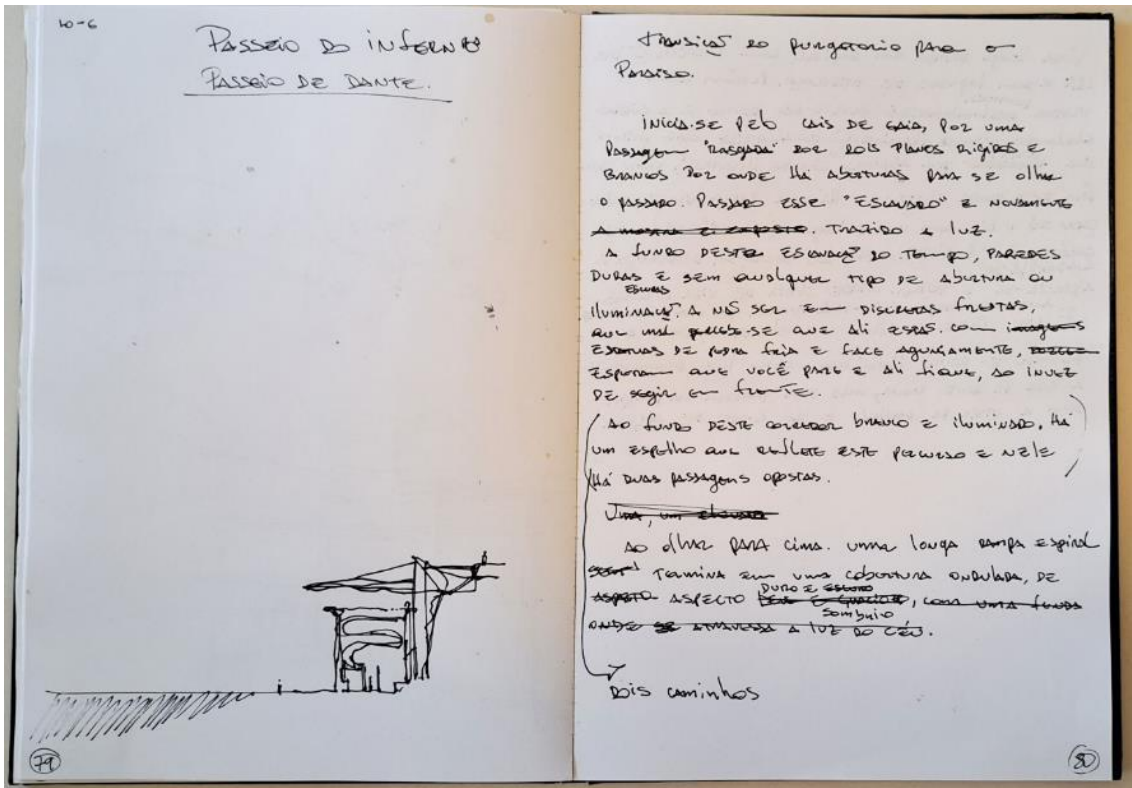 10-6
PASSEIO DO INFERNO
PASSEIO DE DANTE.
79
TRANSIÇÃO DO PURGATORIO PARA O
PARAISO.
INICIA-SE PELO CAIS DE GAIA, POR UMA
PASSAGEM "RASGADA" POR DOIS PLANOS RIGIDOS E
BRANCOS POR ONDE HÁ ABERTURAS PARA SE OLHAR
O PASSADO. PASSADO ESSE "ESCAVADO" E NOVAMENTE
A MOSTRA E EXPOSTO. TRAZIDO A LUZ.
A FUNDO DESTA ESCAVAÇÃO DO TEMPO, PAREDES
DURAS E SEM QUALQUER TIPO DE ABERTURA OU
ESCURAS
ILUMINAÇÃO. A NÃO SER EM DISCRETAS FRESTAS,
QUE MAL PERCEBE-SE QUE ALI ESTÃO. COM IMAGENS
DE PEDRA FRIA E FACE
ESPERAM QUE VOCÊ PARE E ALI FIQUE, AO INVEZ
DE SEGIR EM FRENTE.
AO FUNDO DESTE CORREDOR BRANCO E ILUMINADO, HÁ
UM ESPELHO QUE REFLETE ESTE PERCURSO E NELE
HÁ DUAS PASSAGENS OPOSTAS.
UMA, UM
AO OLHAR PARA CIMA. UMMA LONGA RAMPA ESPIRAL
TERMINA EM UMA COBERTURA ONDULADA, DE
DURO E ESCURO
ASPECTO, COM UMA FENDA
SOMBRIO
ONDE SE ATRAVESSA A LUZ DO CÉU.
DOIS CAMINHOS
80